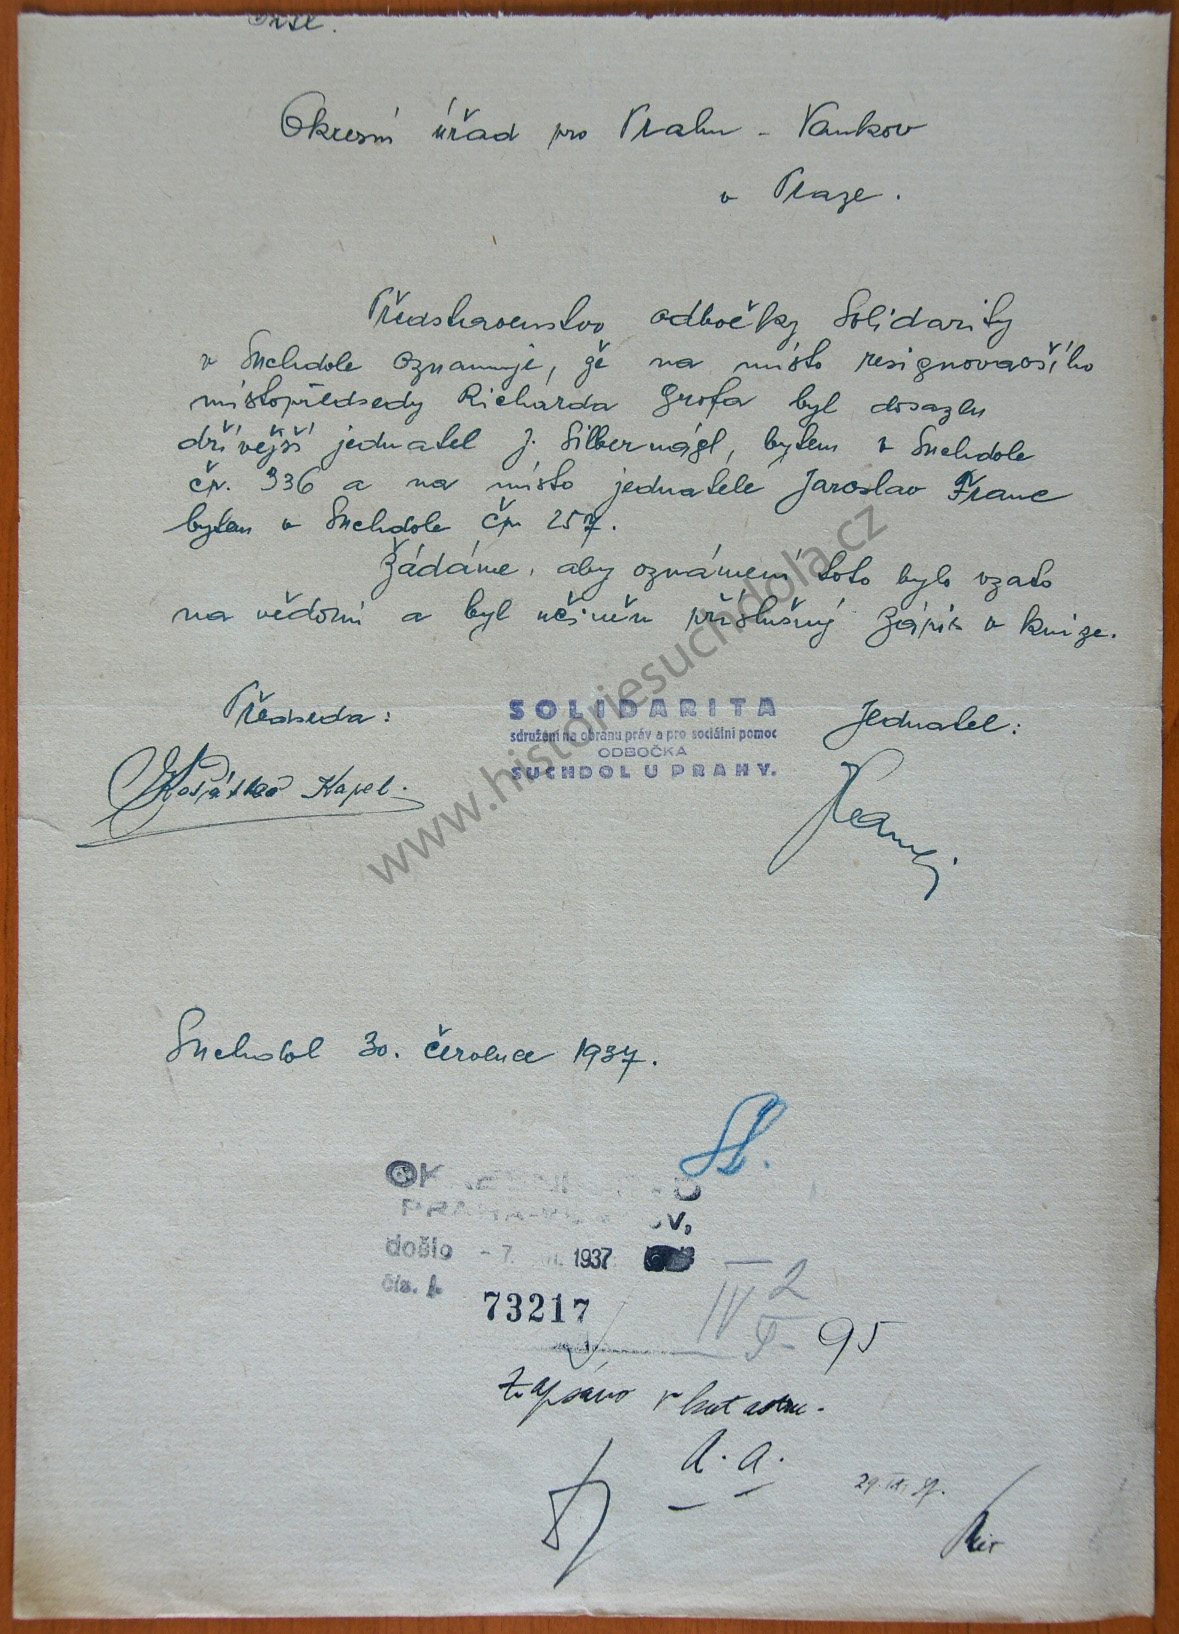 Okresní úřad pro Prahu - Vankov
v Praze.
Představenstvo odbočky Solidarity
v Suchdole oznamuje, že na místo resignovavšího
místopředsedy Richarda Grofa byl dosazen
dřívější jednatel J. Silbernágl, bytem v Suchdole
čp. 336 a na místo jednatele Jaroslav Franc
bytem v Suchdole čp. 257.
Žádáme, aby oznámení toto bylo vzato
na vědomí a byl učiněn příslušný zápis v knize.
Předseda:
SOLIDARITA
sdružení na obranu práv a pro sociální pomoc
ODBOČKA
SUCHDOL U PRAHY.
Jednatel:
Karel.
Suchdol 30. července 1937.
došlo - 7. 1937
čís. j.
73217
IV 2
95
Zapsáno v katastru.
a. a.
www.historiesuchdola.cz